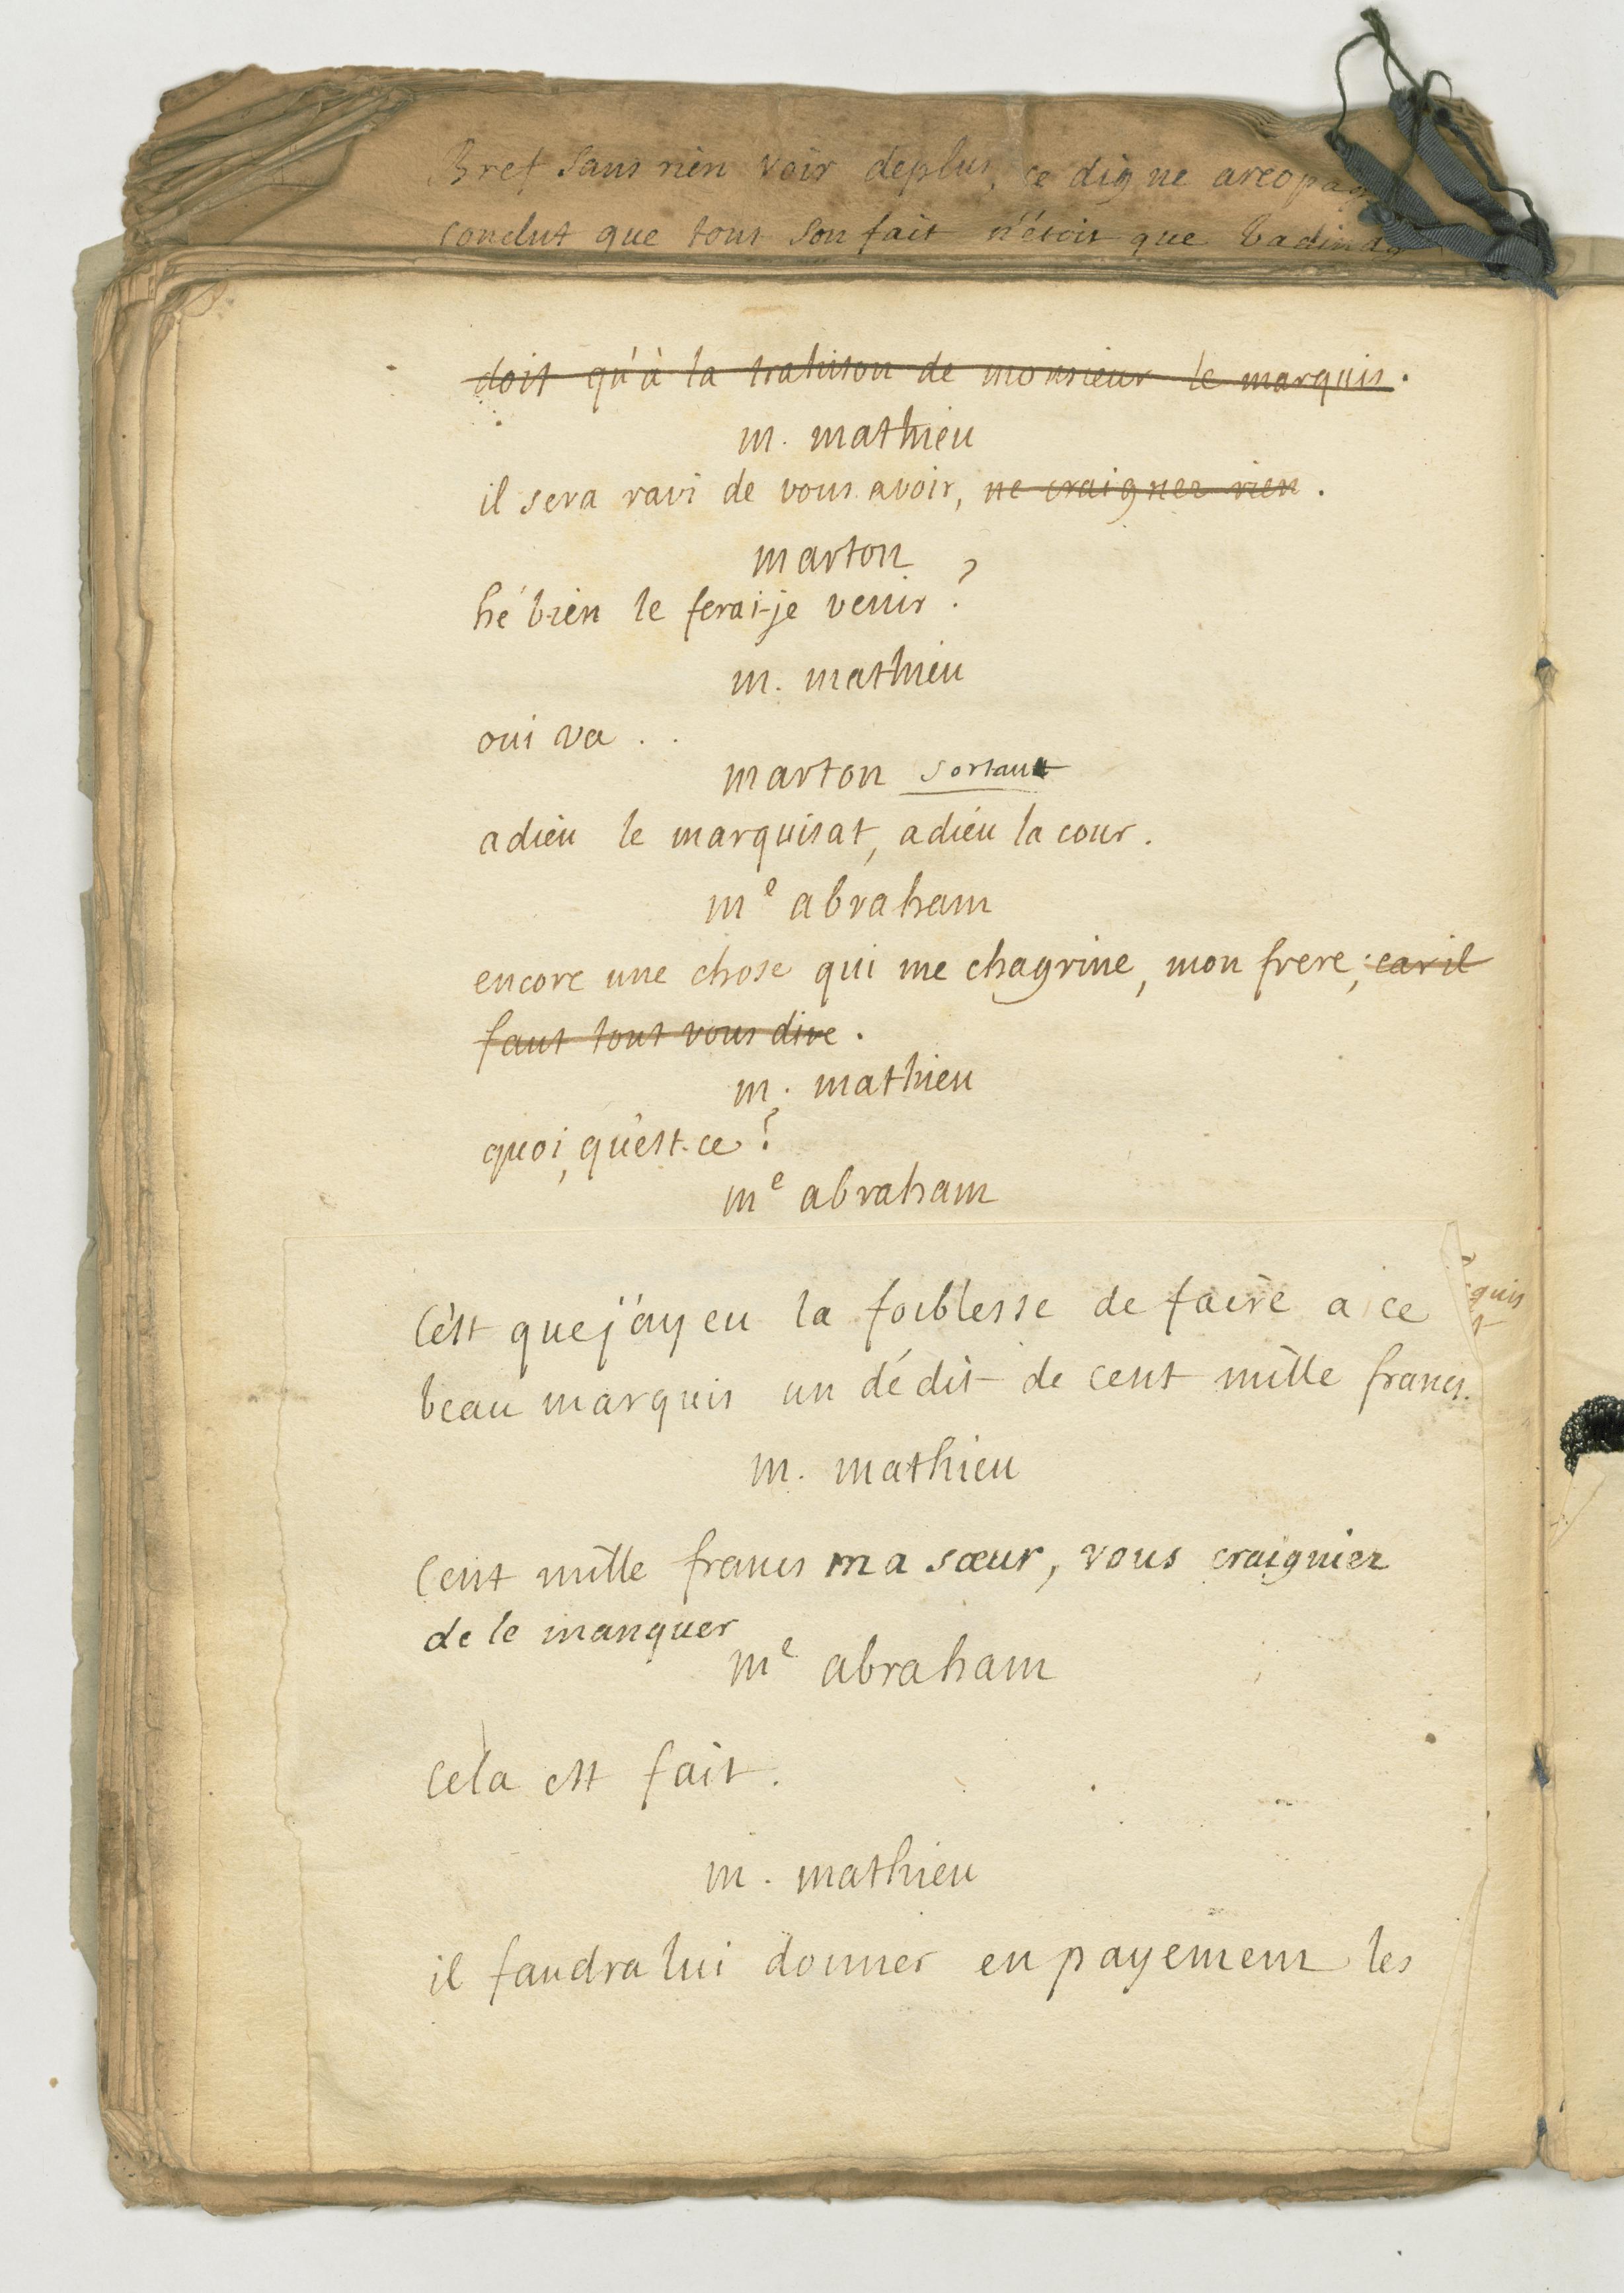 Bref sans rien voir deplus, ce digne areopag
conclut que tout son fait n'étoit que badinag
doit qu'à la trahison de monsieur le marquis.
m. mathieu
il sera ravi de vous avoir, ne craignez rien.
marton
hé bien le ferai-je venir?
m. mathieu
oui va . .
marton sortant
adieu le marquisat, adieu la cour.
me abraham
encore une chose qui me chagrine, mon frere; car il
faut tout vous dire.
m. mathieu
quoi, qu'est-ce?
me abraham
C'est que j'ay eu la foiblesse de faire a ce
quis
beau marquis un dédit de cent mille francs.
m. mathieu
Cent mille francs ma sœur, vous craigniez
de le manquer
me abraham
Cela est fait.
m. mathieu
il faudra lui donner en payement les